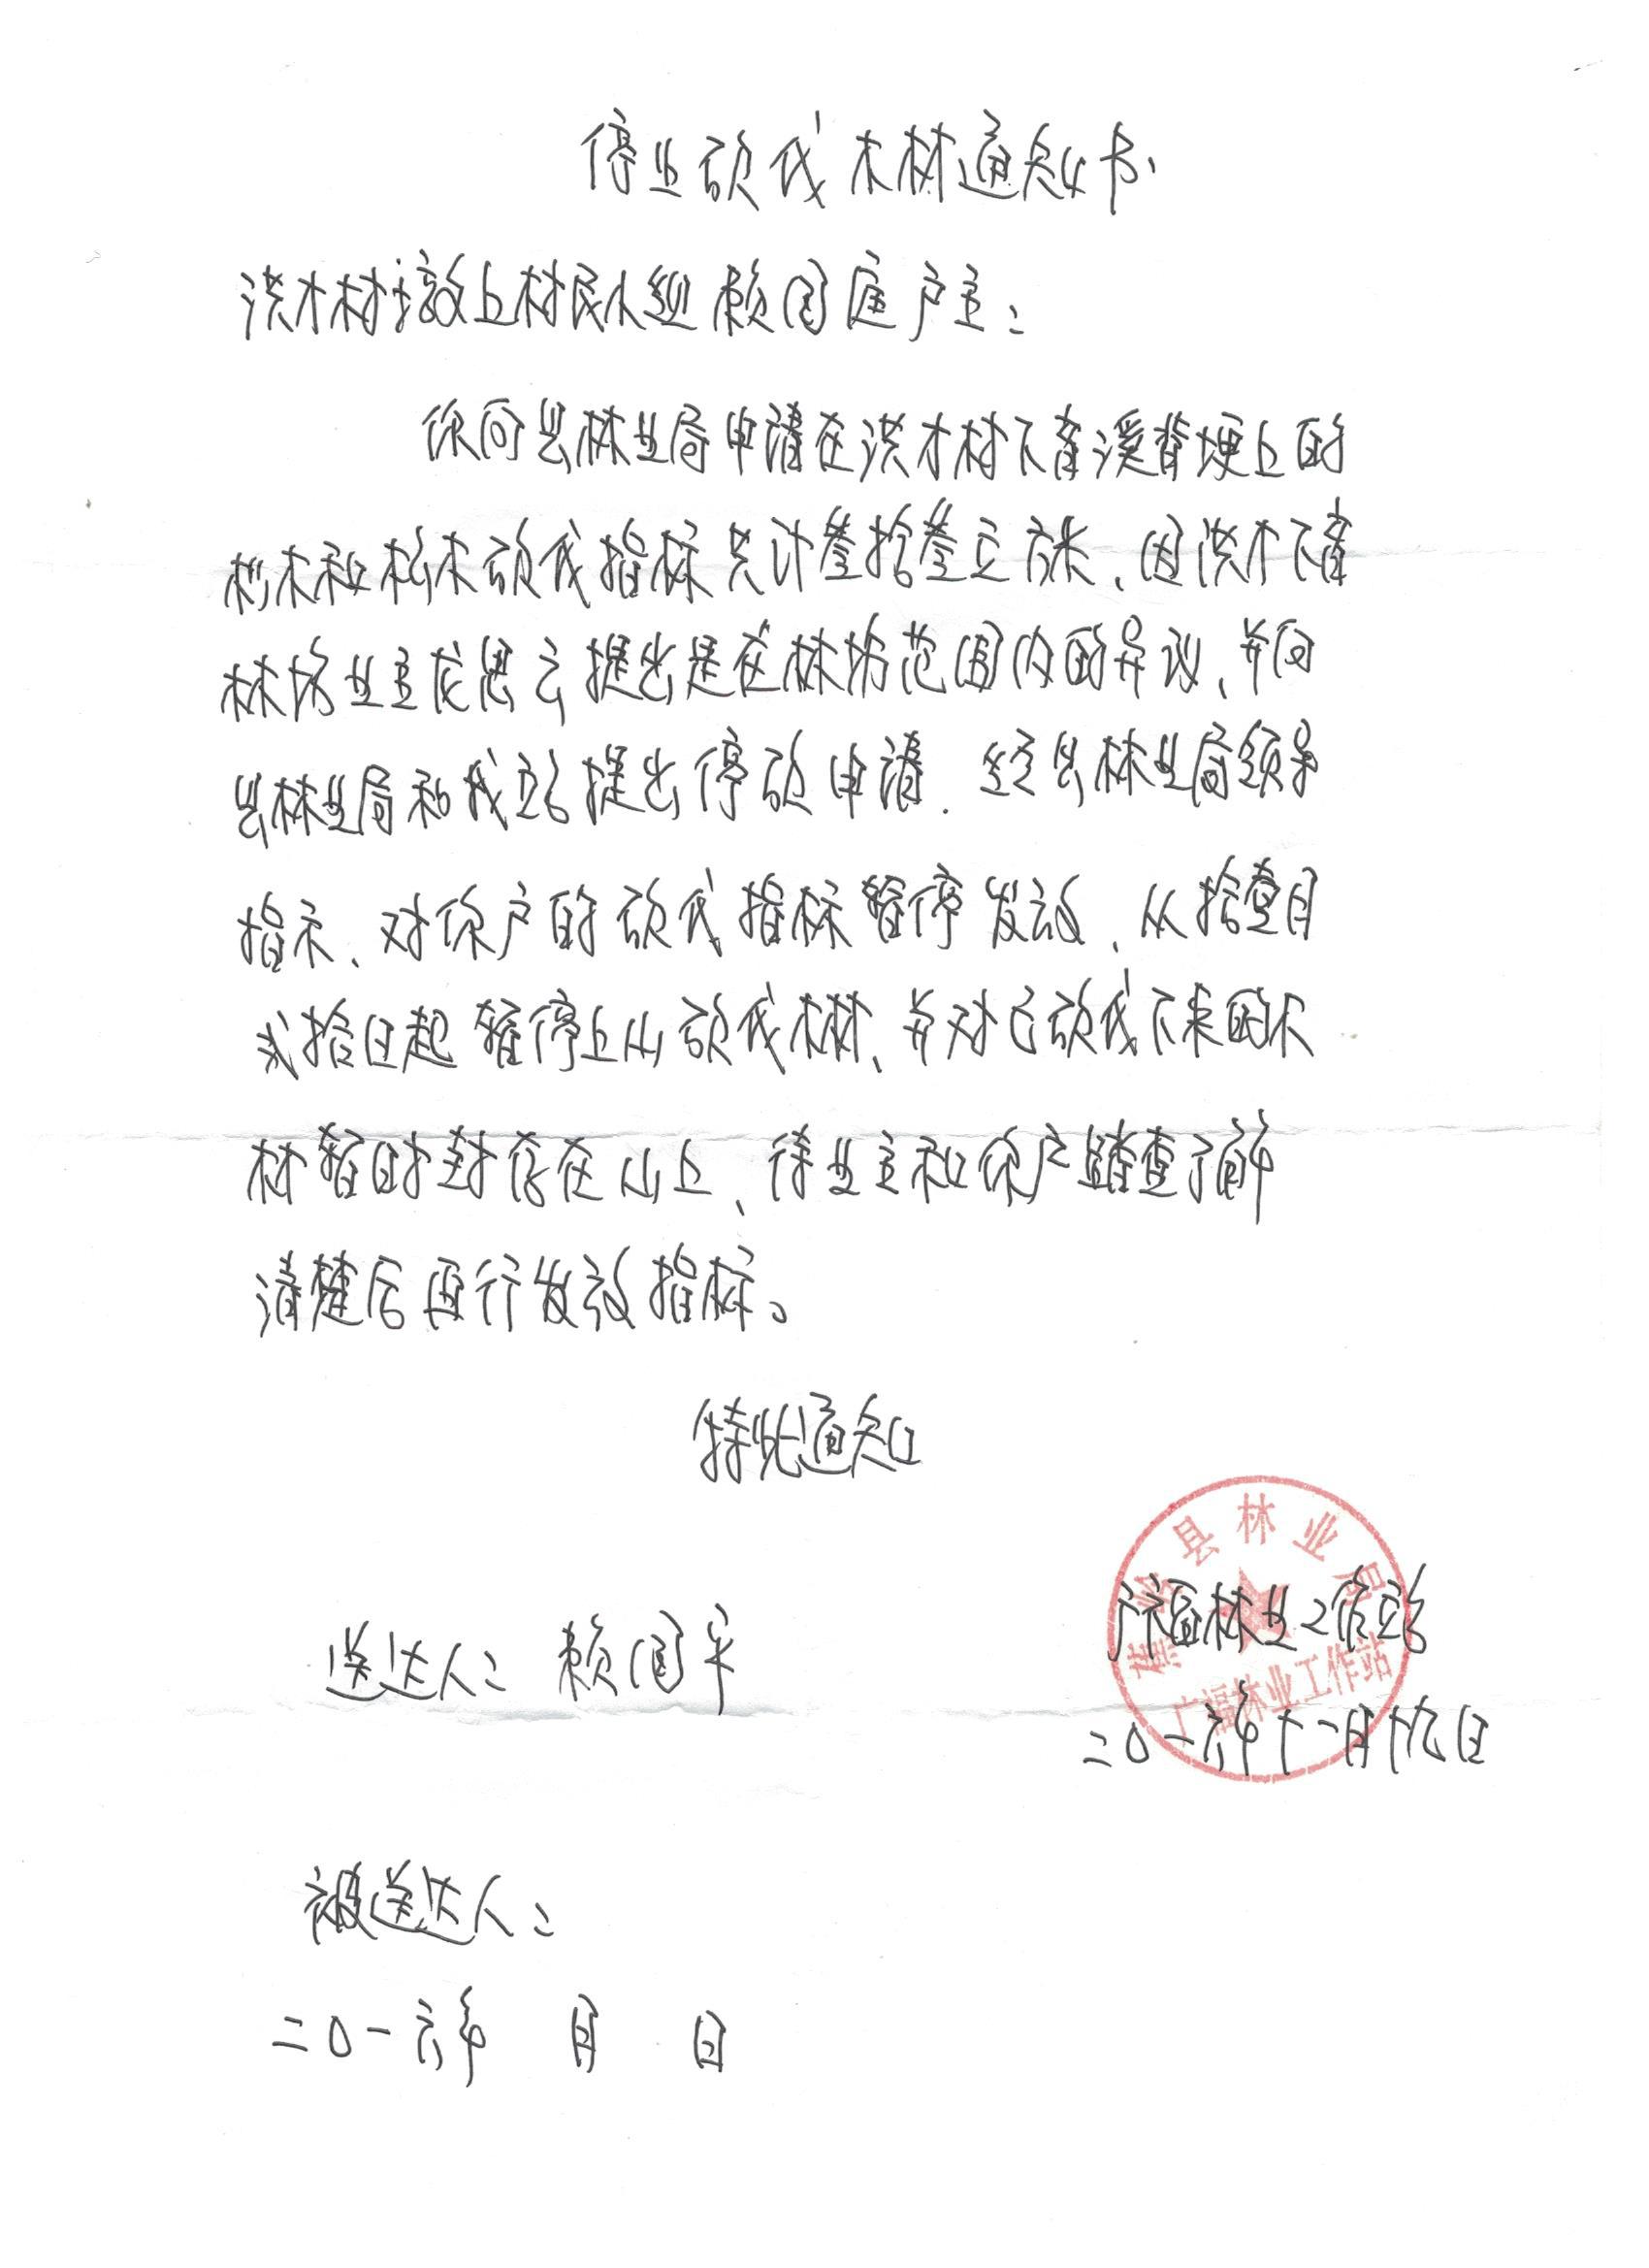 停止砍伐木材通知书
洪才村墩上村民小组赖国庭户主：
你向县林业局申请在洪才村下畲溪背埂上的
杉木和松木砍伐指标共计叁拾叁立方米、因洪才下畲
林场业主龙思云提出是在林场范围内的异议、并向
县林业局和我站提出停砍申请．经县林业局领导
指示、对你户的砍伐指标暂停发放、从拾壹月
贰拾日起暂停上山砍伐木材、并对已砍伐下来的木
材暂时封存在山上、待业主和你户踏查了解
清楚后再行发放指标。
特此通知
蕉岭县林业局
广福林业工作站
广福林业工作站
送达人： 赖国平
二〇一六年十一月十九日
被送达人：
二〇一六年 月 日